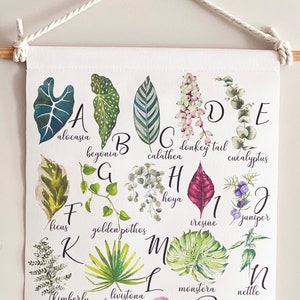 A
alocasia
B
begonia
C
calathea
D
donkey tail
E
eucalyptus
F
ficus
G
golden pothos
H
hoya
I
iresine
J
juniper
K
kimberly
L
livistona
M
monstera
N
nettle